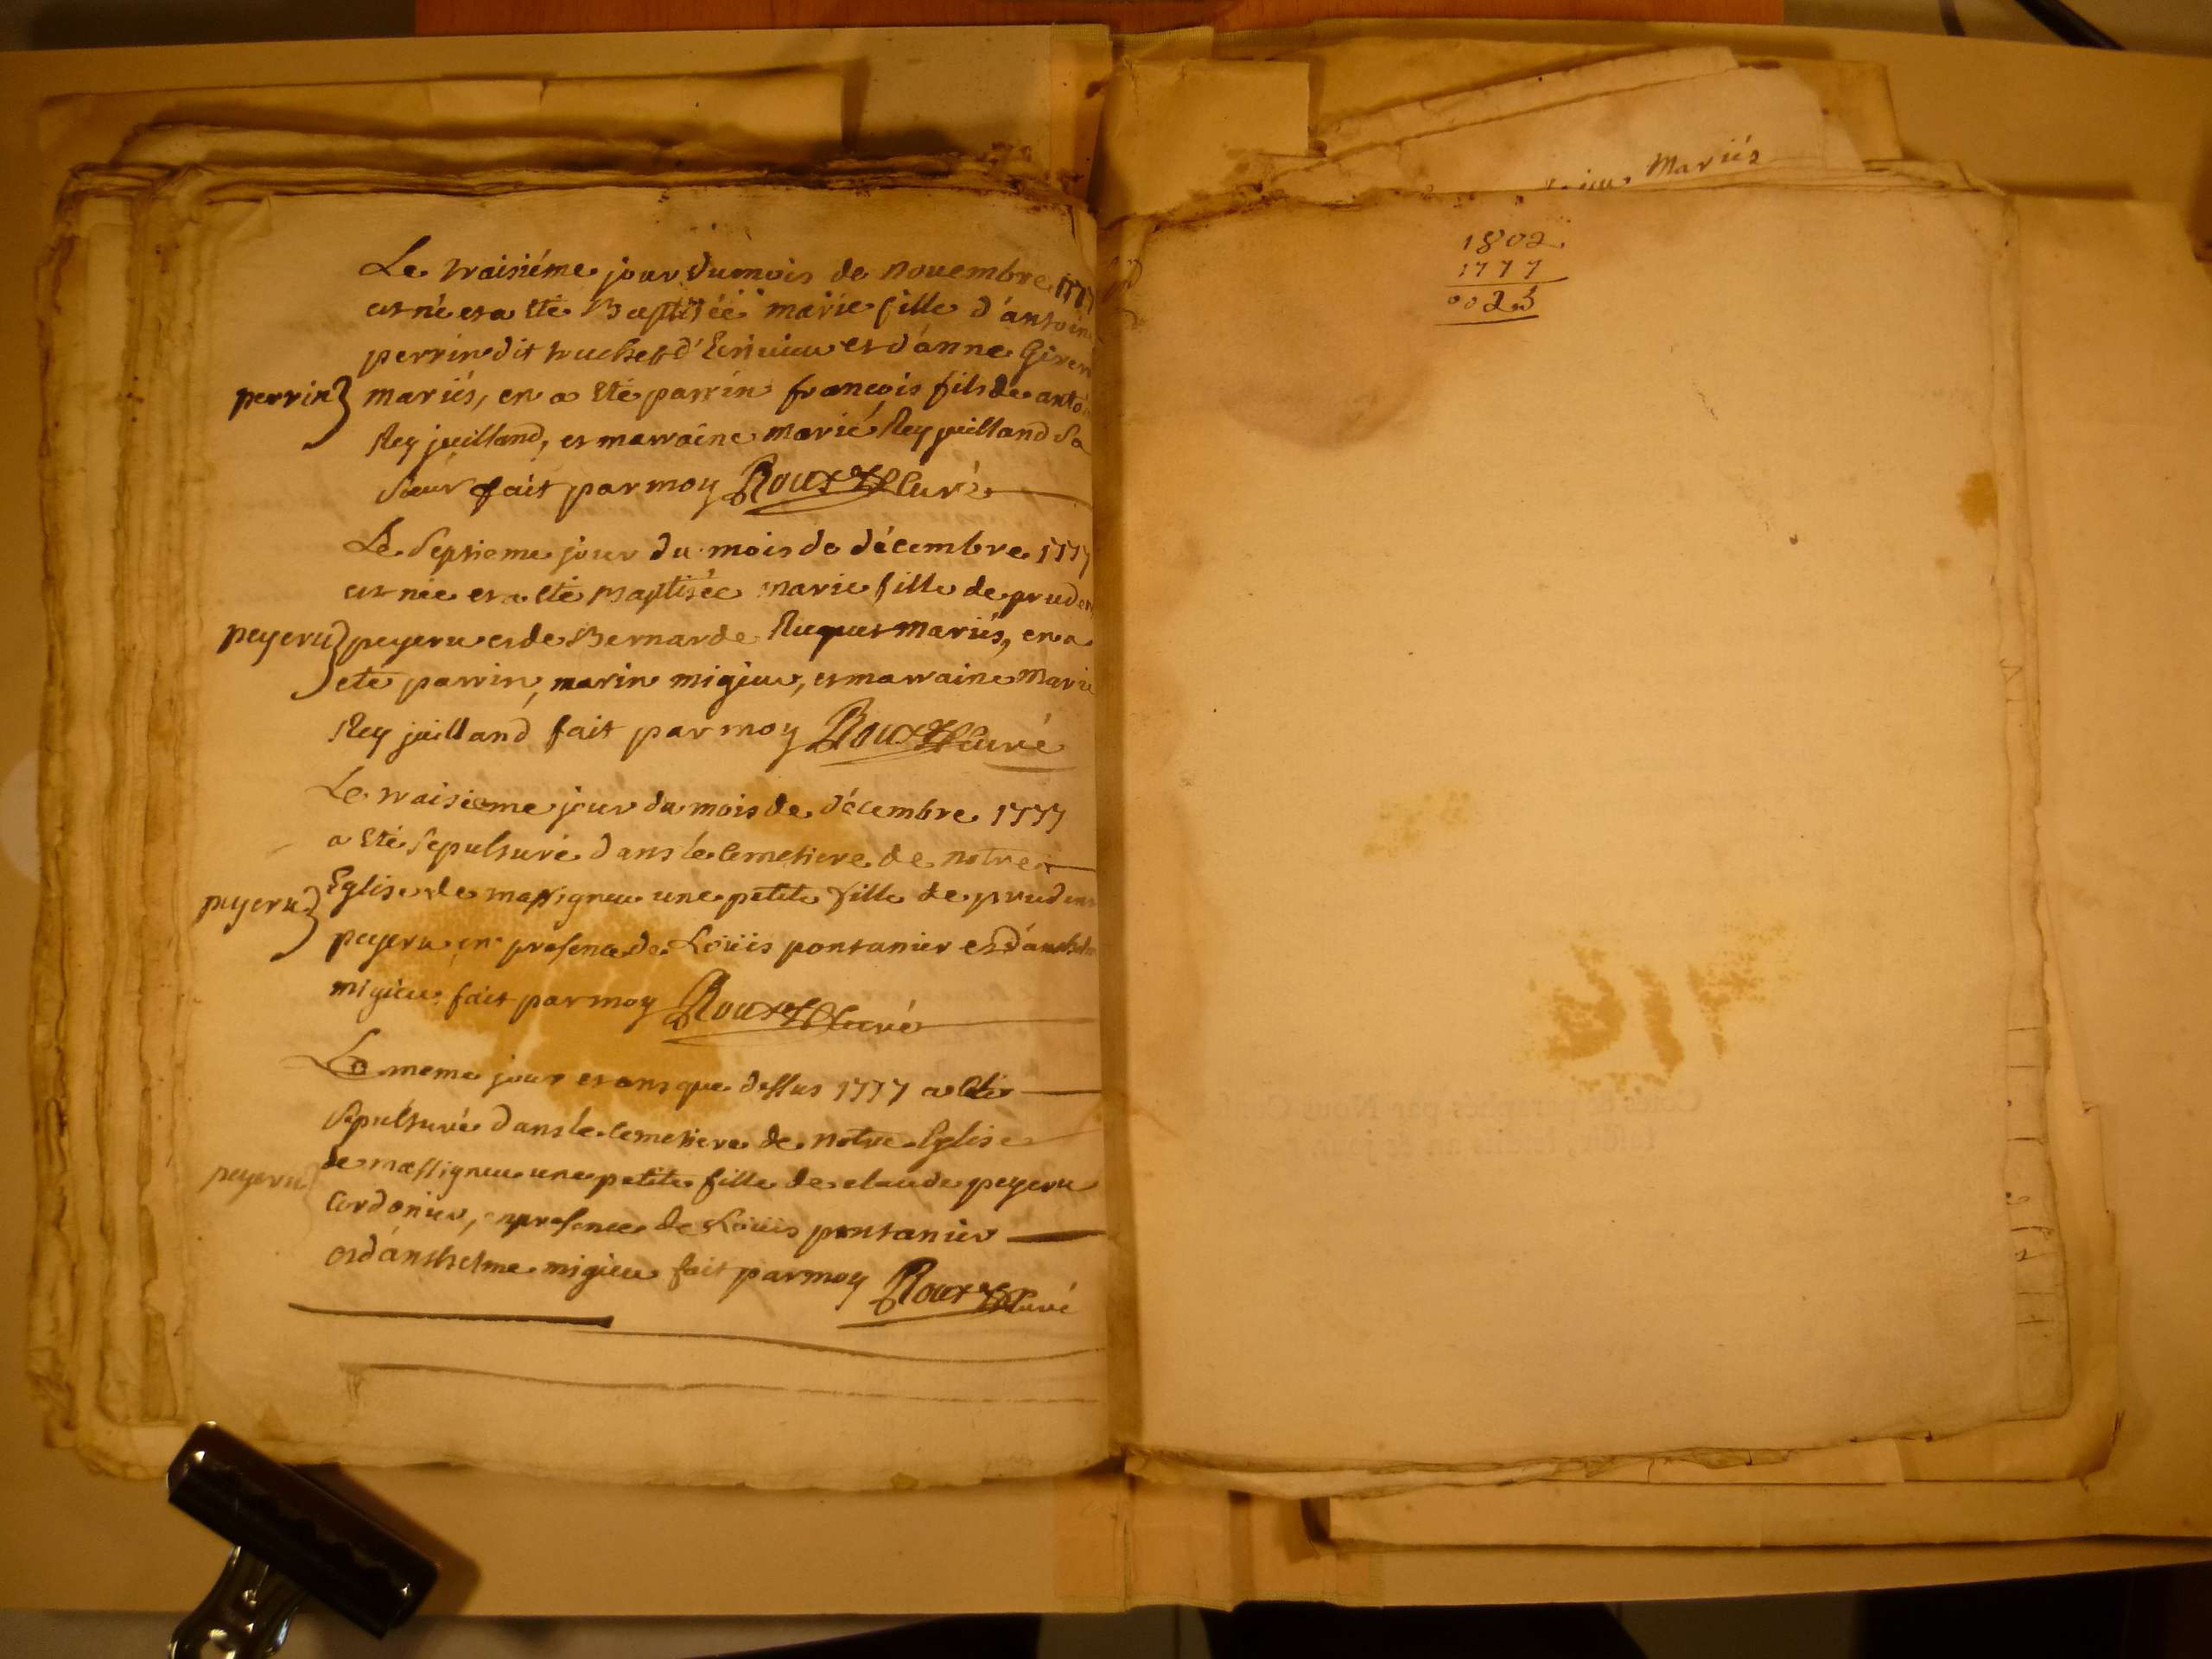 Le traisiéme jour du mois de novembre 1777
est né et a été Baptisée marie fille d'antoine
perrin dit d' et d'anne
perrin mariés, en a été parrin francois fils de
Rey juilland, et marraine marie Rey juilland sa
sœur fait par moy Roux Curé
Le septieme jour du mois de décembre 1777
est née et a été Baptisée marie fille de pruden
peyeru peyeru et de Bernarde Ruquet mariés, en a
été parrin, marin migieu, et marraine marie
Rey juilland fait par moy Roux Curé
Le traisieme jour du mois de décembre 1777
a été sepulturé dans le Cemetiere de notre
peyeru Eglise de massigneu une petite fille de prudent
peyeru en presence de Loüis pontanier et d'anthelme
migieu fait par moy Roux Curé
Le meme jour et ans que dessus 1777 a été
sepulturé dans le Cemetiere de notre Eglise
peyeru de massigneu une petite fille de claude peyeru
Cordonier, en presence de Loüis pontanier
et d'anthelme migieu fait par moy Roux Curé
Mariés
1802
1777
0025